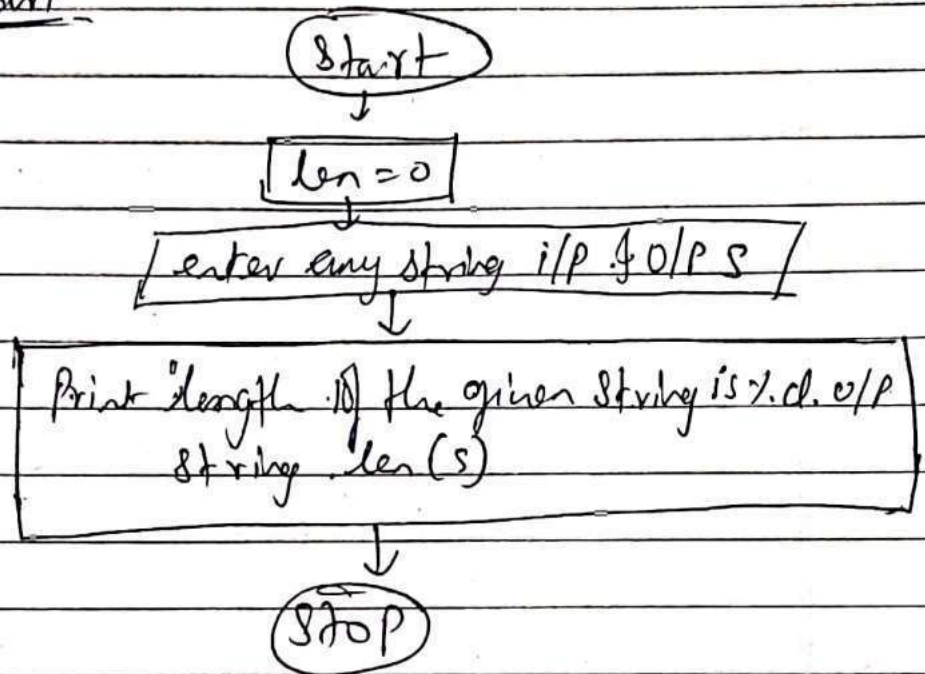 Start
len = 0
enter any string i/p & o/p s
Print "length of the given string is %.d. o/p
string len(s)
Stop